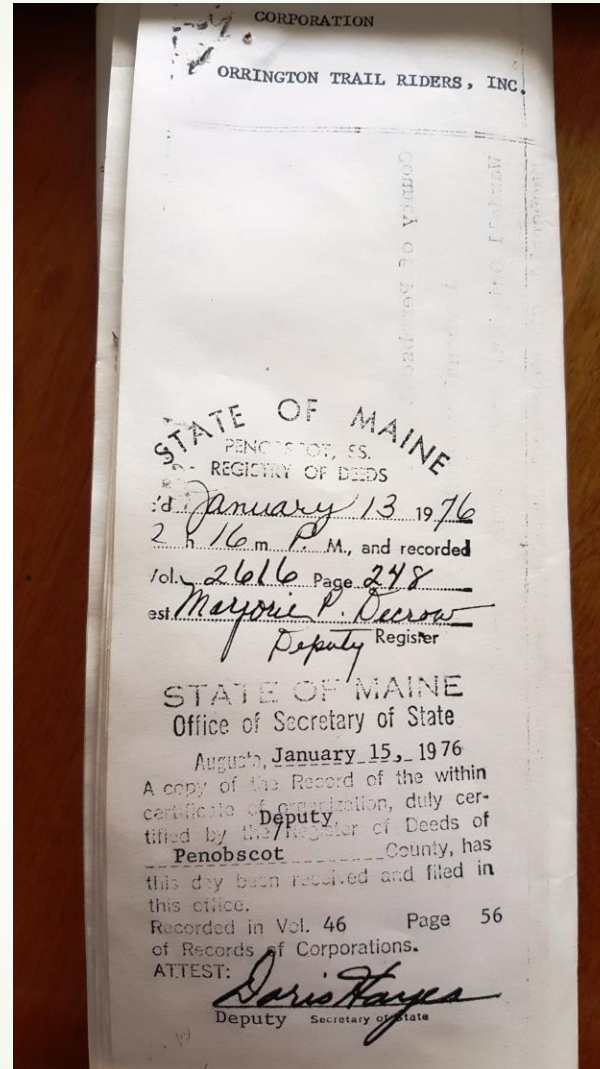 CORPORATION
ORRINGTON TRAIL RIDERS, INC.
County of Penobsc
STATE OF MAINE
PENOBSCOT, SS.
REGISTRY OF DEEDS
'd January 13 1976
2 h 16 m P. M., and recorded
Vol. 2616 Page 248
est Marjorie P. Decrow
Deputy Register
STATE OF MAINE
Office of Secretary of State
Augusta, January 15, 1976
A copy of the Record of the within
certificate of organization, duly cer-
Deputy
tified by the/Register of Deeds of
Penobscot County, has
this day been received and filed in
this office.
Recorded in Vol. 46 Page 56
of Records of Corporations.
ATTEST:
Doris Hayes
Deputy Secretary of State